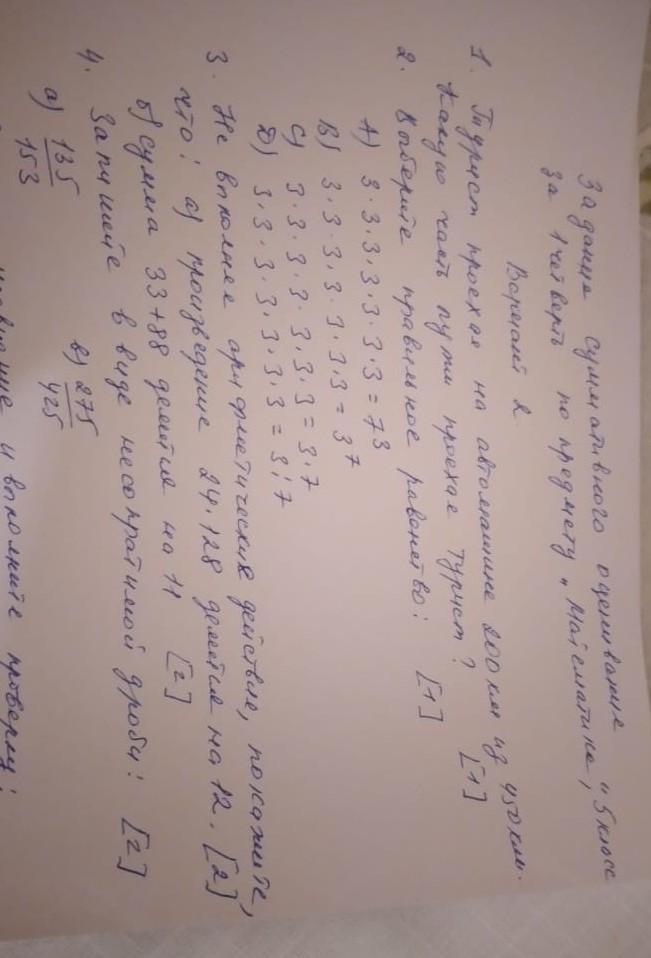 Задания суммативного оценивания
за 1 четверть по предмету „Математика", 5 класс
Вариант 2
1. Турист проехал на автомашине 200 км из 450 км.
Какую часть пути проехал турист? [1]
2. Выберите правильное равенство: [1]
A) 3·3·3·3·3·3·3 = 7³
B) 3·3·3·3·3·3·3 = 3⁷
C) 3·3·3·3·3·3·3 = 3·7
D) 3·3·3·3·3·3·3 = 3:7
3. Не выполняя арифметические действия, покажите,
что: а) произведение 24·128 делится на 12. [2]
б) сумма 33+88 делится на 11 [2]
4. Запишите в виде несократимой дроби: [2]
а) 135/153 в) 275/425
и выполните проверку: